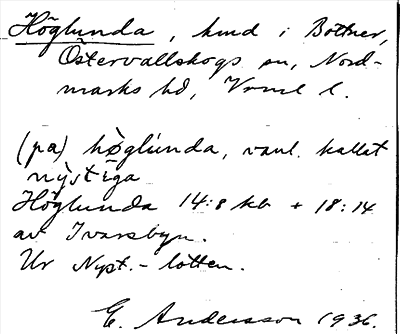 Höglunda, hmd i Bottner,
Östervallskogs sn, Nord-
marks hd, Vrml l.
(pa) hø̀glúnda, vanl. kallat
nỳstiga
Höglunda 14:8 kb + 18:14
av Ivarsbyn.
Ur Nyst.-lotten.
E. Andersson 1936.